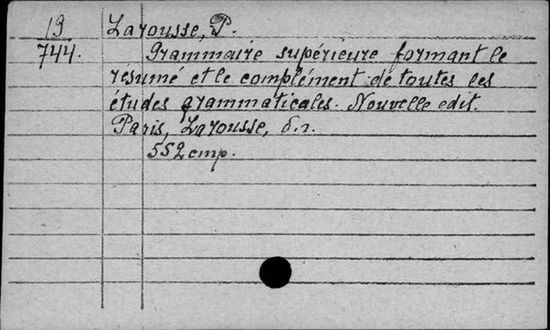 19 Larousse, P.
744. Grammaire supérieure formant le
résumé et le complément de toutes les
études grammaticales. Nouvelle edit.
Paris, Larousse, б.г.
552 стр.